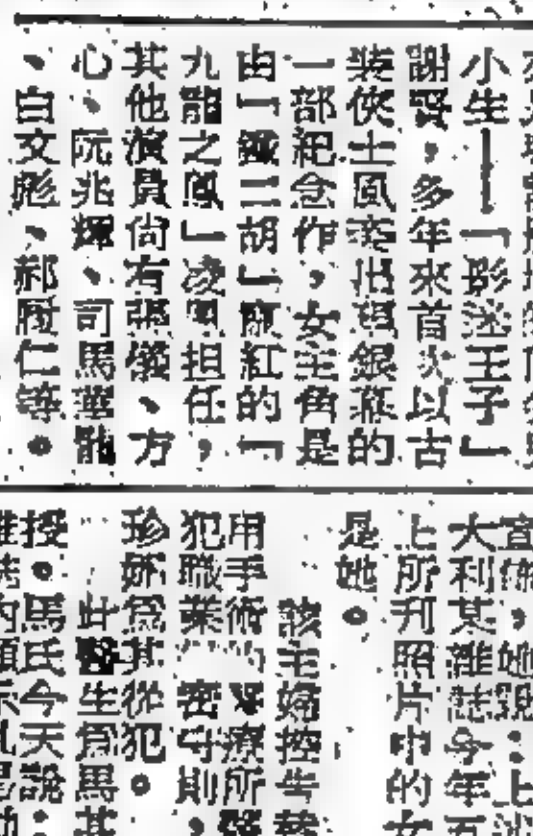 小生——「影迷王子」
謝賢，多年來首次以古
裝俠士風姿出現銀幕的
一部紀念作，女主角是
由「鐵二胡」而紅的「
九龍之鳳」凌鳳担任，
其他演員尚有張儀、方
心、阮兆輝、司馬華龍
、白文彪、郝履仁等。
宣佈，她說：上
大利某雜誌今年五
上所刋照片中的女
是她。
該主婦控告替
用手術的醫療所
犯職業密守則，
珍妮為其從犯。
此醫生為馬其
授。馬氏今天說：